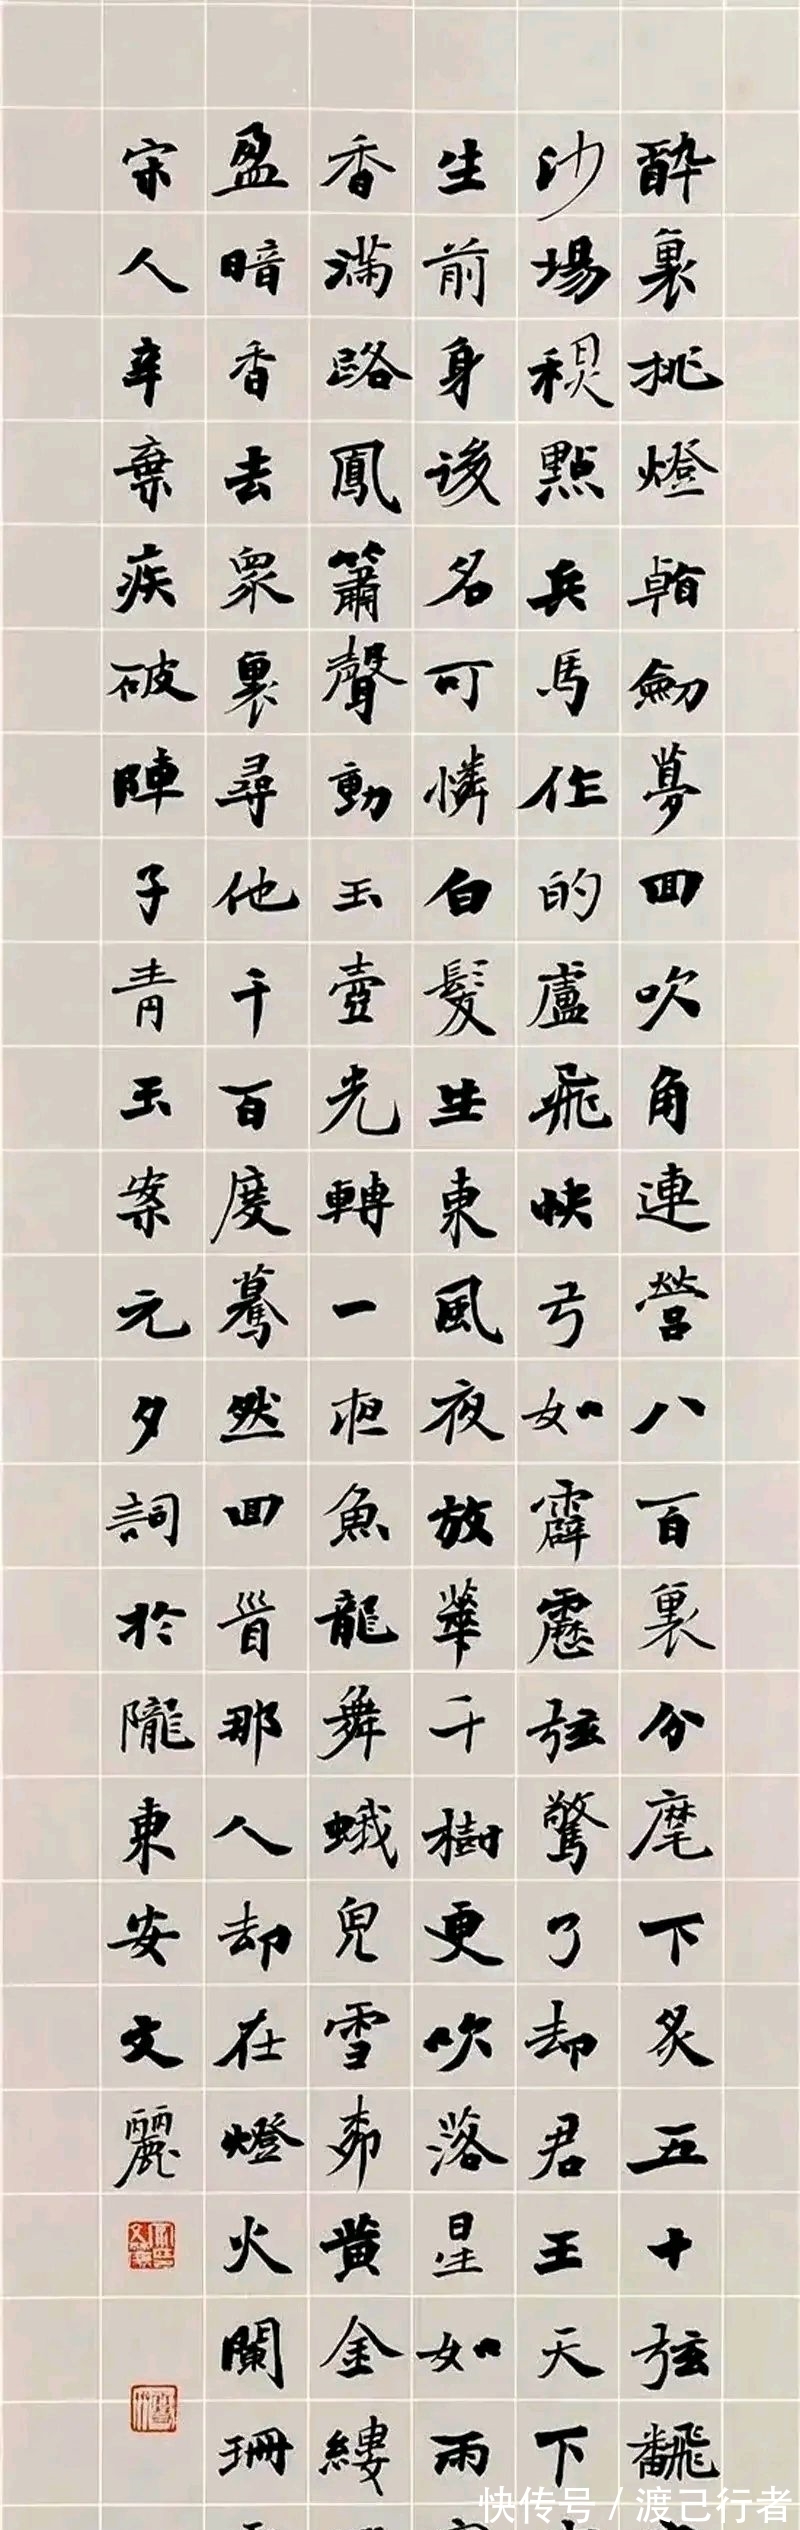 醉裏挑燈看劍夢回吹角連營八百裏分麾下炙五十弦飜
沙場秋點兵馬作的盧飛快弓如霹靂弦驚了却君王天下
生前身後名可憐白髮生東風夜放華千樹更吹落星如雨
香滿路鳳簫聲動玉壺光轉一夜魚龍舞蛾兒雪柳黃金縷
盈暗香去眾裏尋他千百度驀然回首那人却在燈火闌珊
宋人辛棄疾破陣子青玉案元夕詞於隴東安文麗
快传号 / 渡己行者